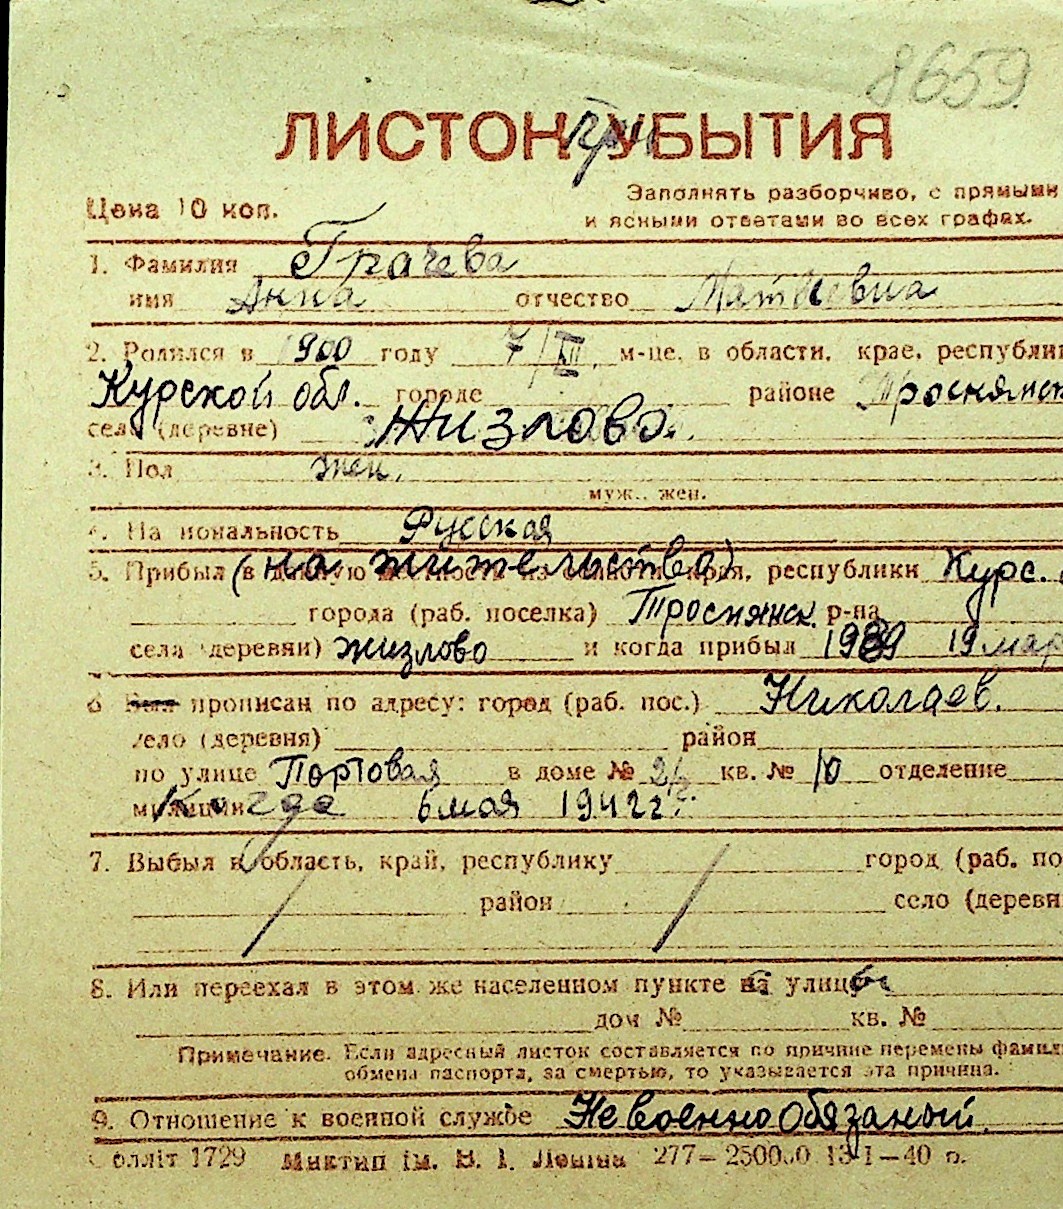 8659
ЛИСТОК УБЫТИЯ
Заполнять разборчиво, с прямыми
Цена 10 коп.
и ясными ответами во всех графах.
1. Фамилия Грачева
имя Анна отчество Матвевна
2. Родился в 1900 году 7/XII м-це, в области, крае, республик
Курской обл. городе районе Троснянск
село (деревне) Жизлово.
3. Пол жен.
муж., жен.
4. Национальность Русская
5. Прибыл (на жительство) в данную местность из области, края, республики Курс.
города (раб. поселка) Троснянск. р-на
села (деревни) Жизлово и когда прибыл 1939 19 мар
6 Был прописан по адресу: город (раб. пос.) Николаев.
село (деревня) район
по улице Портовая в доме № кв. № 10 отделение
милиции Когда 6 мая 1942 г.
7. Выбыл в область, край, республику город (раб. по
район село (деревн
8. Или переехал в этом же населенном пункте на улицу
дом № кв. №
Примечание. Если адресный листок составляется по причине перемены фамил
обмена паспорта, за смертью, то указывается эта причина.
9. Отношение к военной службе Невоеннообязаный.
Облліт 1729 Миктип ім. В. І. Леніна 277—250000 13-1—40 р.